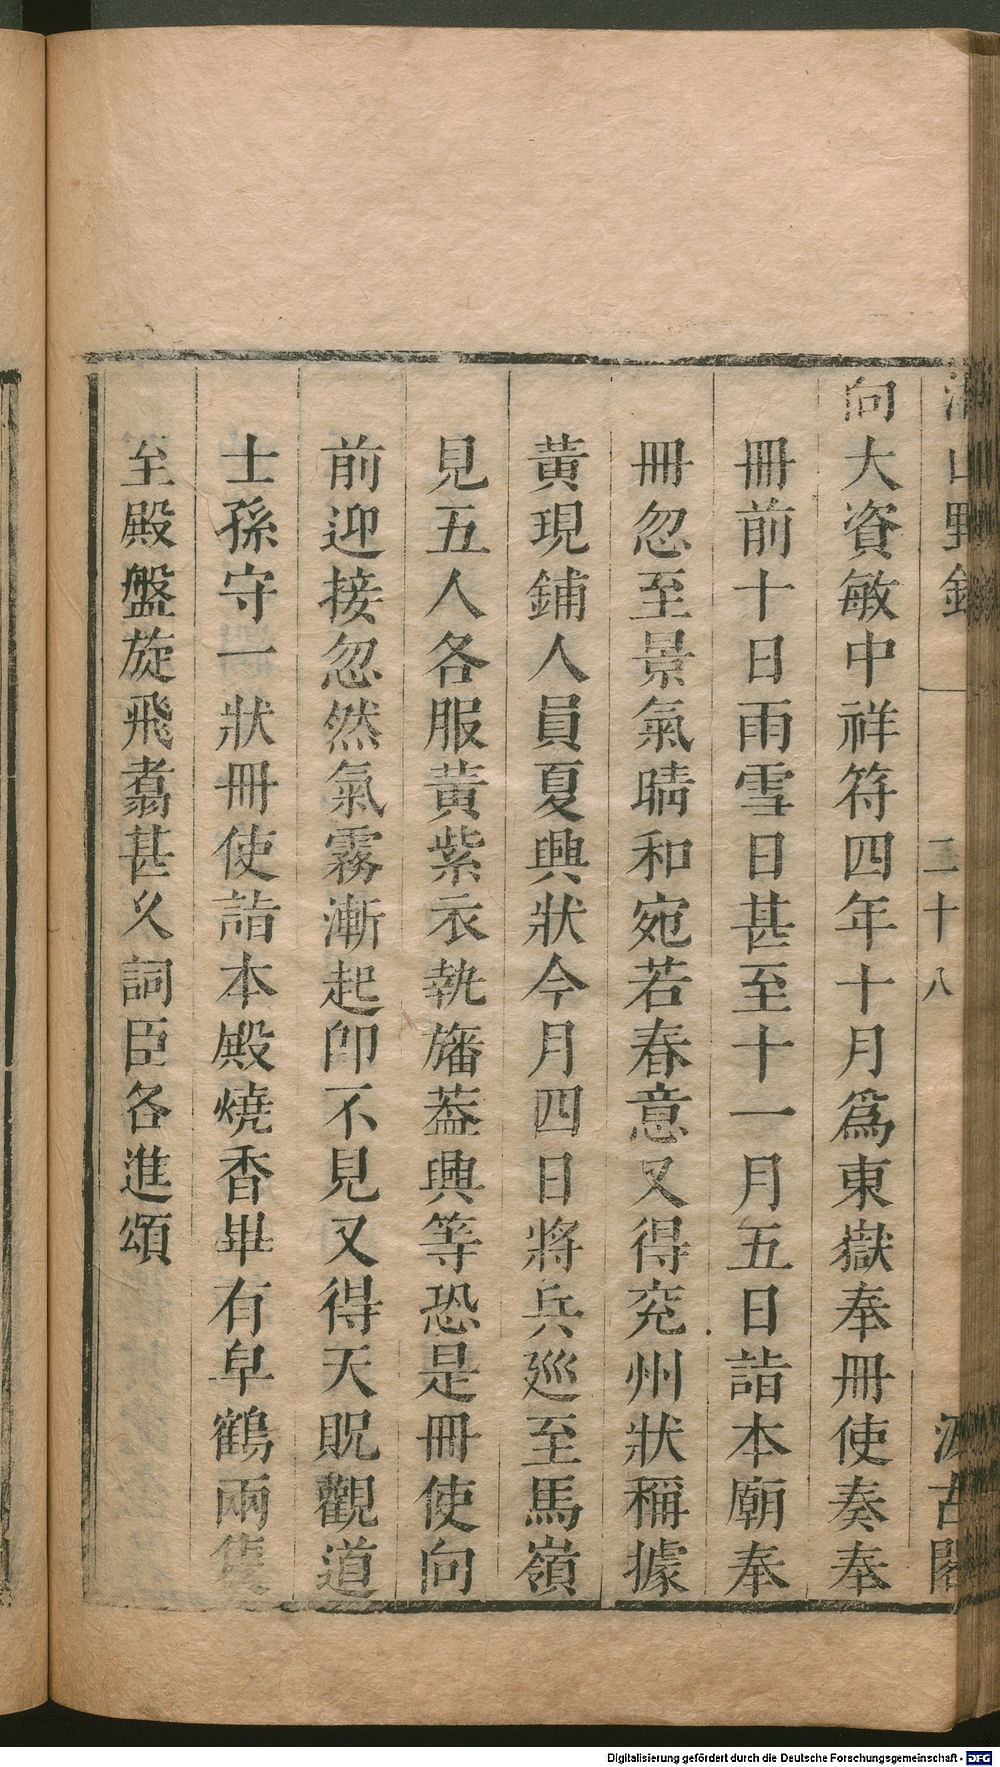 山野
二十八
古閣
向大資敏中祥符四年十月爲東嶽奉冊使奏奉
冊前十日雨雪日甚至十一月五日詣本廟奉
冊忽至景氣晴和宛若春意又得兖州狀稱據
黃現鋪人員夏興狀今月四日將兵廵至馬嶺
見五人各服黃紫衣執旛葢興等恐是冊使向
前迎接忽然氣霧漸起卽不見又得天貺觀道
士孫守一狀冊使詣本殿燒香畢有皁鶴兩隻
至殿盤旋飛翥甚久詞臣各進頌
Digitalisierung gefördert durch die Deutsche Forschungsgemeinschaft - DFG